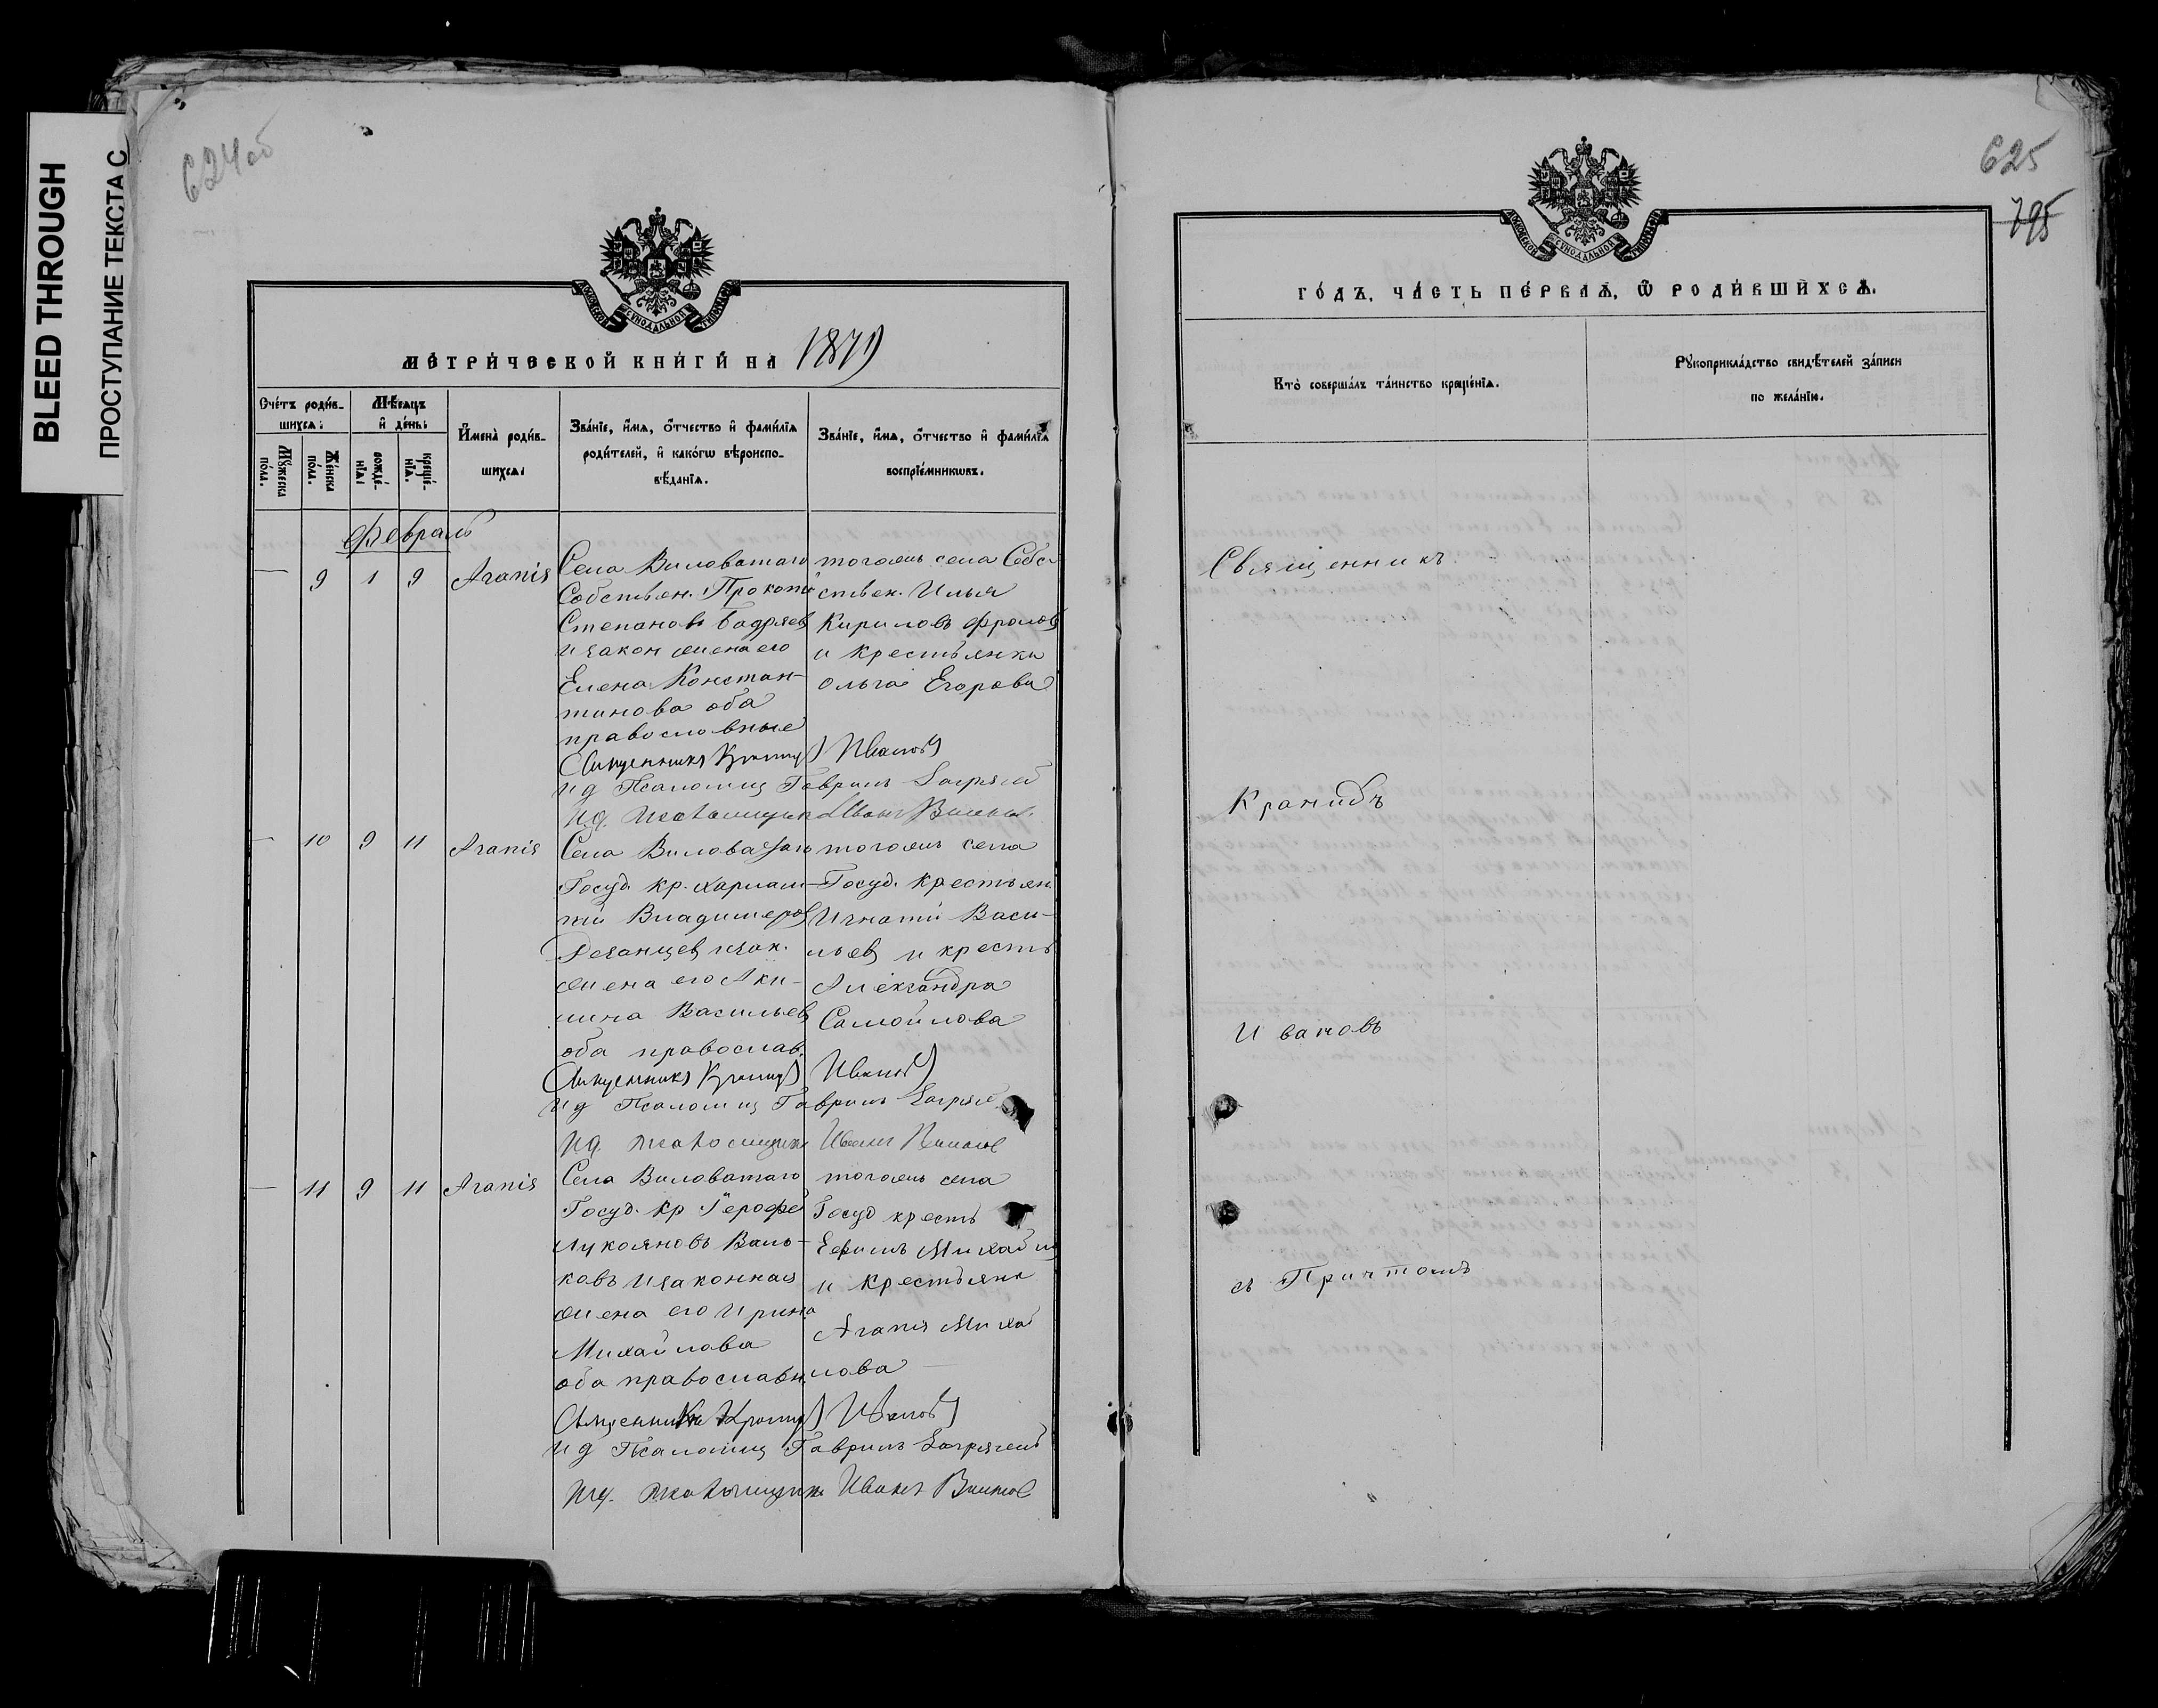 BLEED THROUGH
ПРОСТУПАНИЕ ТЕКСТА С
624об
МОСКОВСКОЙ СѴНОДАЛЬНОЙ ТИПОГРАФІИ
МЕТРИЧЕСКОЙ КНИГИ НА 1879
Счетъ родив-
шихся:
Мѣсяцъ
и день:
Имена родив-
шихся:
Званіе, имя, отчество и фамилія
родителей, и какогѡ вѣроиспо-
вѣданія.
Званіе, имя, отчество и фамилія
воспріемникѡвъ.
Мꙋжеска
пола.
Женска
пола.
рожде-
нія:
креще-
нія.
Февраль
— 9 1 9 Агапія
Села Виловатаго
Собствен. Прокопій
Степановъ
и закон жена его
Елена Констан-
тинова оба
православные
тогожъ села Соб-
ствен. Илья
Кириловъ Фролов
и крестьянка
Ольга Егорова
Священникъ Кронидъ Ивановъ
И д Псаломщ Гавриилъ
И.д. Псаломщикъ Иванъ
— 10 9 11 Агапія
Села Виловатаго
Госуд. кр. Харлам-
пій Владимеров
изак.
жена его Аки-
лина Васильев
оба православ.
тогожъ села
Госуд. крестьян.
Игнатій Васи-
льев и крестъ
Александра
Самойлова
Священникъ Кронидъ Ивановъ
И д Псаломщ Гавриилъ
И.д. Псаломщикъ Иванъ
— 11 9 11 Агапія
Села Виловатаго
Госуд. кр Герофей
Лукояновъ Воль-
ковъ изаконная
жена его Ирина
Михайлова
оба православн.
тогожъ села
Госуд крестъ
Ефимъ Михайл
и крестьянк
Агапія Михай
лова
Священникъ Кронидъ Ивановъ
И д Псаломщ Гавриилъ
И.д. Псаломщикъ Иванъ
625
795
МОСКОВСКОЙ СѴНОДАЛЬНОЙ ТИПОГРАФІИ
ГОДЪ, ЧАСТЬ ПЕРВАЯ, Ѡ РОДИВШИХСЯ.
Кто совершалъ таинство крещенія.
Рꙋкоприкладство свидѣтелей записи
по желанію.
Священникъ
Кранидъ
Ивановъ
съ Причтомъ